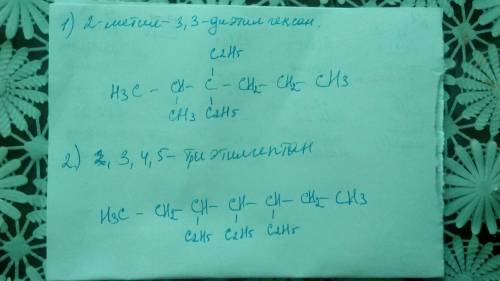 1) 2-метил-3,3-диэтил гексан.
C2H5
H3C - CH - C - CH2 - CH2 - CH3
CH3 C2H5
2) 3, 4, 5 - триэтилгептан
H3C - CH2 - CH - CH - CH - CH2 - CH3
C2H5 C2H5 C2H5